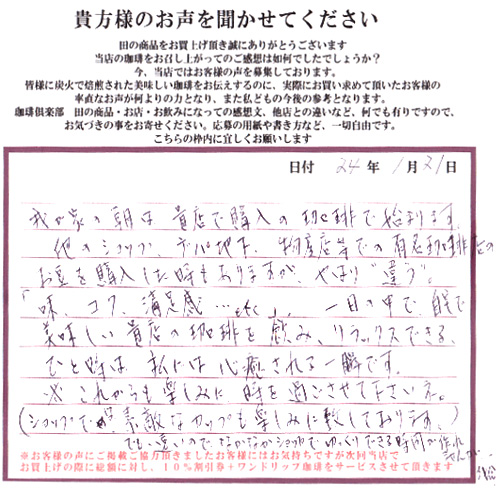 貴方様のお声を聞かせてください
田の商品をお買上げ頂き誠にありがとうございます
当店の珈琲をお召し上がってのご感想は如何でしたでしょうか？
今、当店ではお客様の声を募集しております。
皆様に炭火で焙煎された美味しい珈琲をお伝えするのに、実際にお買い求めて頂いたお客様の
率直なお声が何よりの力となり、また私どもの今後の参考となります。
珈琲倶楽部 田の商品・お店・お飲みになっての感想文、他店との違いなど、何でも有りですので、
お気づきの事をお寄せください。応募の用紙や書き方など、一切自由です。
こちらの枠内に宜しくお願いします
日付 24年 1月21日
我が家の朝は貴店で購入の珈琲で始まります。
他のショップ、デパ地下、物産店等での有名珈琲店の
お豆を購入した時もありますが、やはり"違う"。
「味、コク、満足感…etc」、一日の中で、自宅で
美味しい貴店の珈琲を飲み、リラックスできる、
ひと時は、私には心癒される一瞬です。
※これからも楽しみに時を過ごさせて下さいネ。
(ショップで 素敵なカップも楽しみに致しております、
でも遠いので、なかなかショップでゆっくりできる時間が作れ
ませんが…
※お客様の声にご掲載ご協力頂きましたお客様にはお気持ちですが次回当店で
お買上げの際に総額に対し、10%割引券+ワンドリップ珈琲をサービスさせて頂きます